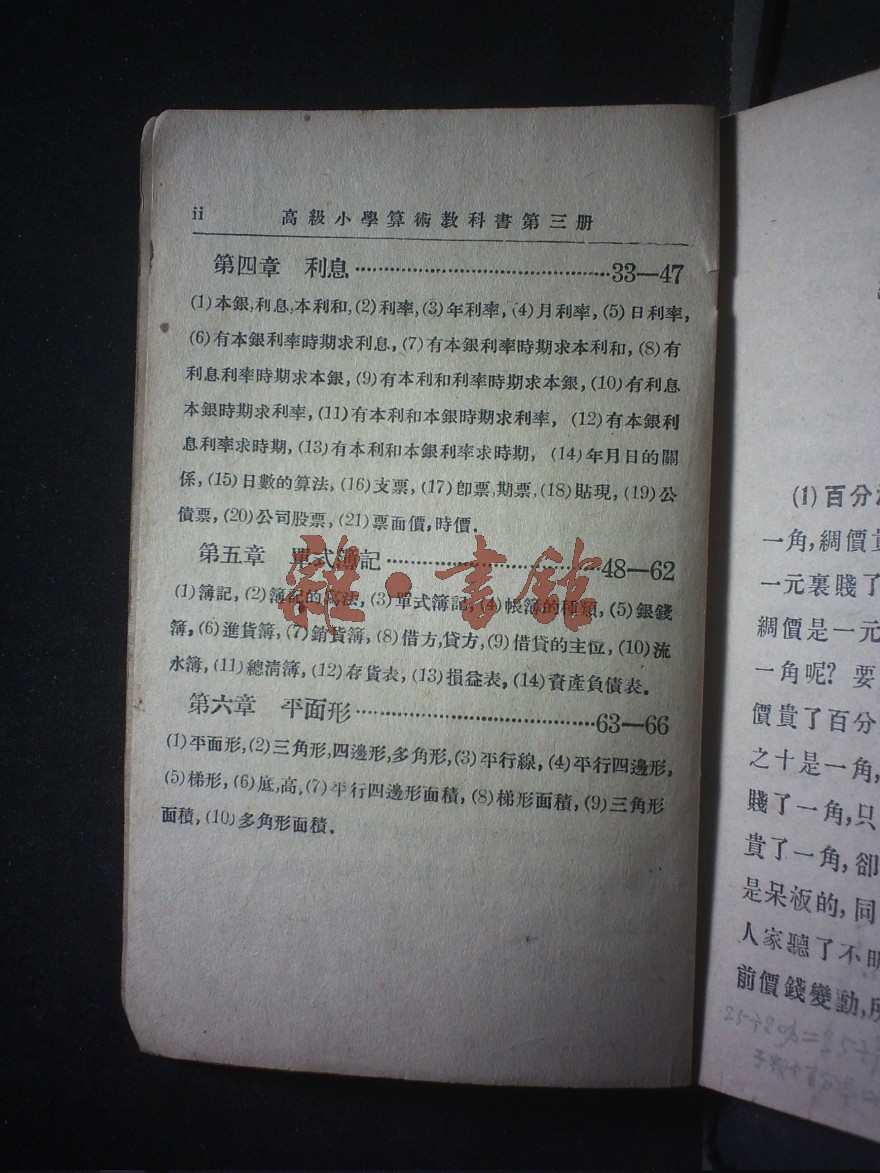 ii 高級小學算術教科書第三册
第四章 利息……………………………………33—47
(1)本銀,利息,本利和,(2)利率,(3)年利率,(4)月利率,(5)日利率,
(6)有本銀利率時期求利息,(7)有本銀利率時期求本利和,(8)有
利息利率時期求本銀,(9)有本利和利率時期求本銀,(10)有利息
本銀時期求利率,(11)有本利和本銀時期求利率,(12)有本銀利
息利率求時期,(13)有本利和本銀利率求時期,(14)年月日的關
係,(15)日數的算法,(16)支票,(17)卽票,期票,(18)貼現,(19)公
債票,(20)公司股票,(21)票面價,時價.
第五章 單式簿記………………………………48—62
(1)簿記,(2)簿記的寫法,(3)單式簿記,(4)帳簿的種類,(5)銀錢
簿,(6)進貨簿,(7)銷貨簿,(8)借方,貸方,(9)借貸的主位,(10)流
水簿,(11)總淸簿,(12)存貨表,(13)損益表,(14)資產負債表.
第六章 平面形…………………………………63—66
(1)平面形,(2)三角形,四邊形,多角形,(3)平行線,(4)平行四邊形,
(5)梯形,(6)底,高,(7)平行四邊形面積,(8)梯形面積,(9)三角形
面積,(10)多角形面積.
雜·書館
(1)百分
一角,綢價貴
一元裏賤了
綢價是一元
一角呢?要
價貴了百分
之十是一角,
賤了一角,只
貴了一角,卻
是呆板的,同
人家聽了不明
前價錢變動,所